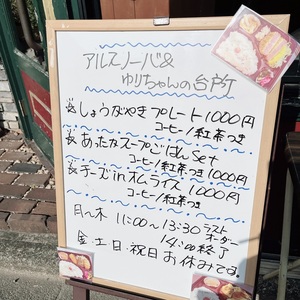 アルスノーバ&
ゆりちゃんの台所
しょうがやきプレート1000円
コーヒー/紅茶つき
あったかスープごはんset
コーヒー/紅茶 1000円
チーズinオムライス1000円
コーヒー/紅茶つき
月〜木 11:00〜13:30 ラストオーダー
14:00終了
金・土・日・祝日お休みです。